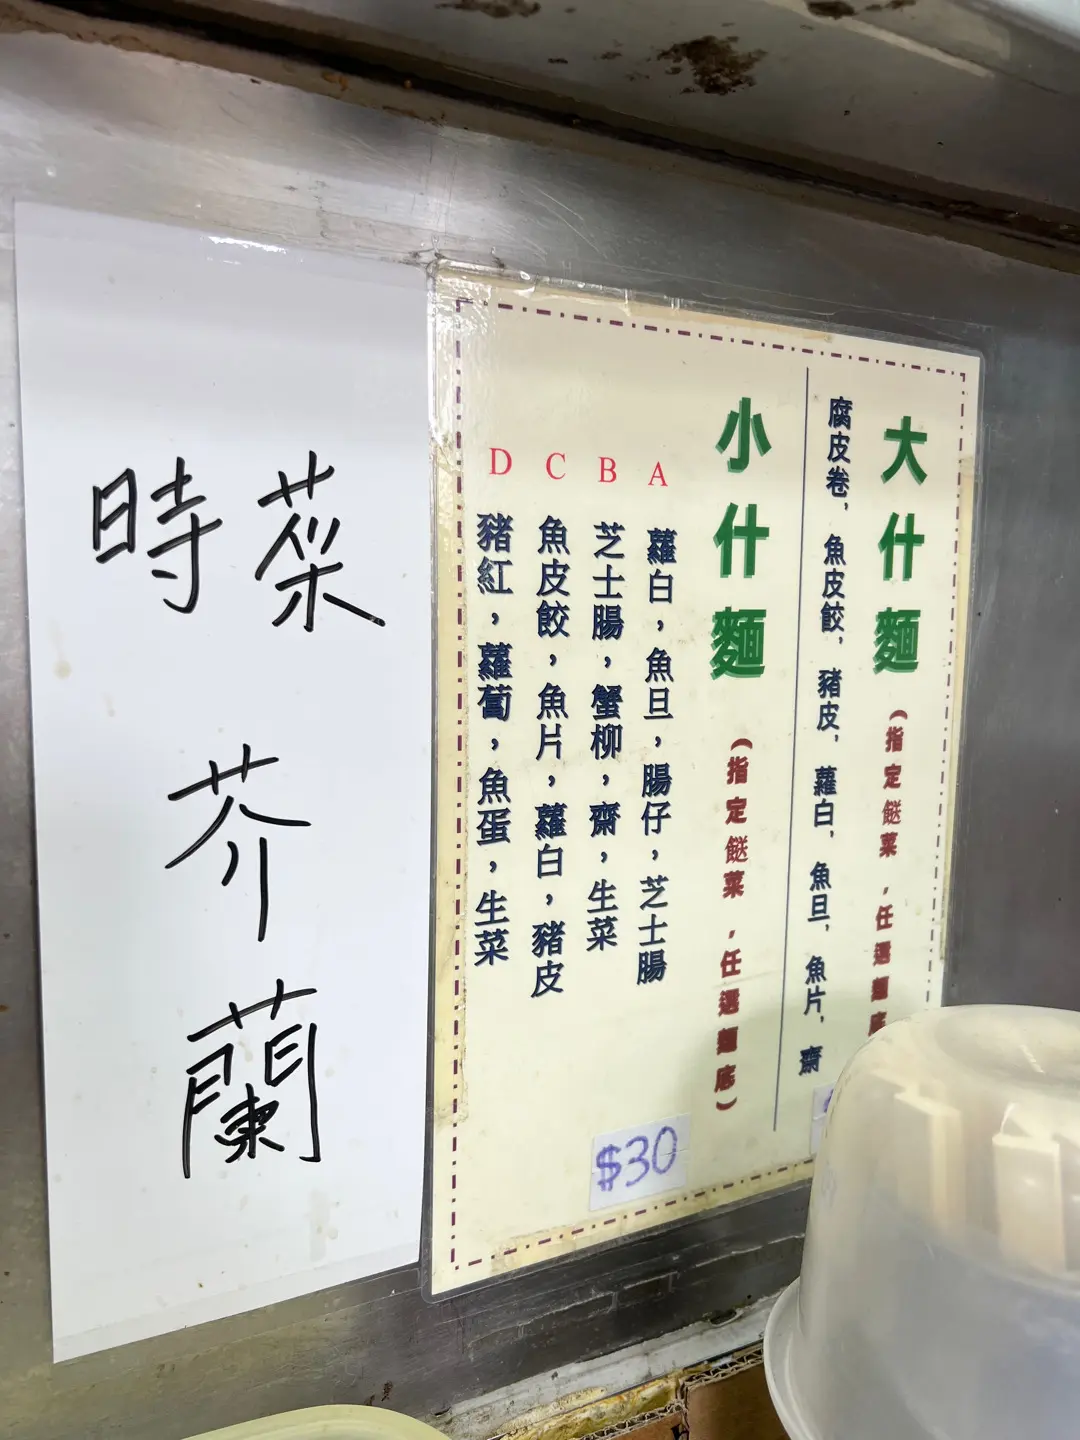 時菜
芥
蘭
大什麵(指定餸菜,任選麵底
腐皮卷,魚皮餃,豬皮,蘿白,魚旦,魚片,齋
小什麵(指定餸菜,任選麵底)
A 蘿白,魚旦,腸仔,芝士腸
B 芝士腸,蟹柳,齋,生菜
C 魚皮餃,魚片,蘿白,豬皮
D 豬紅,蘿蔔,魚蛋,生菜
$30